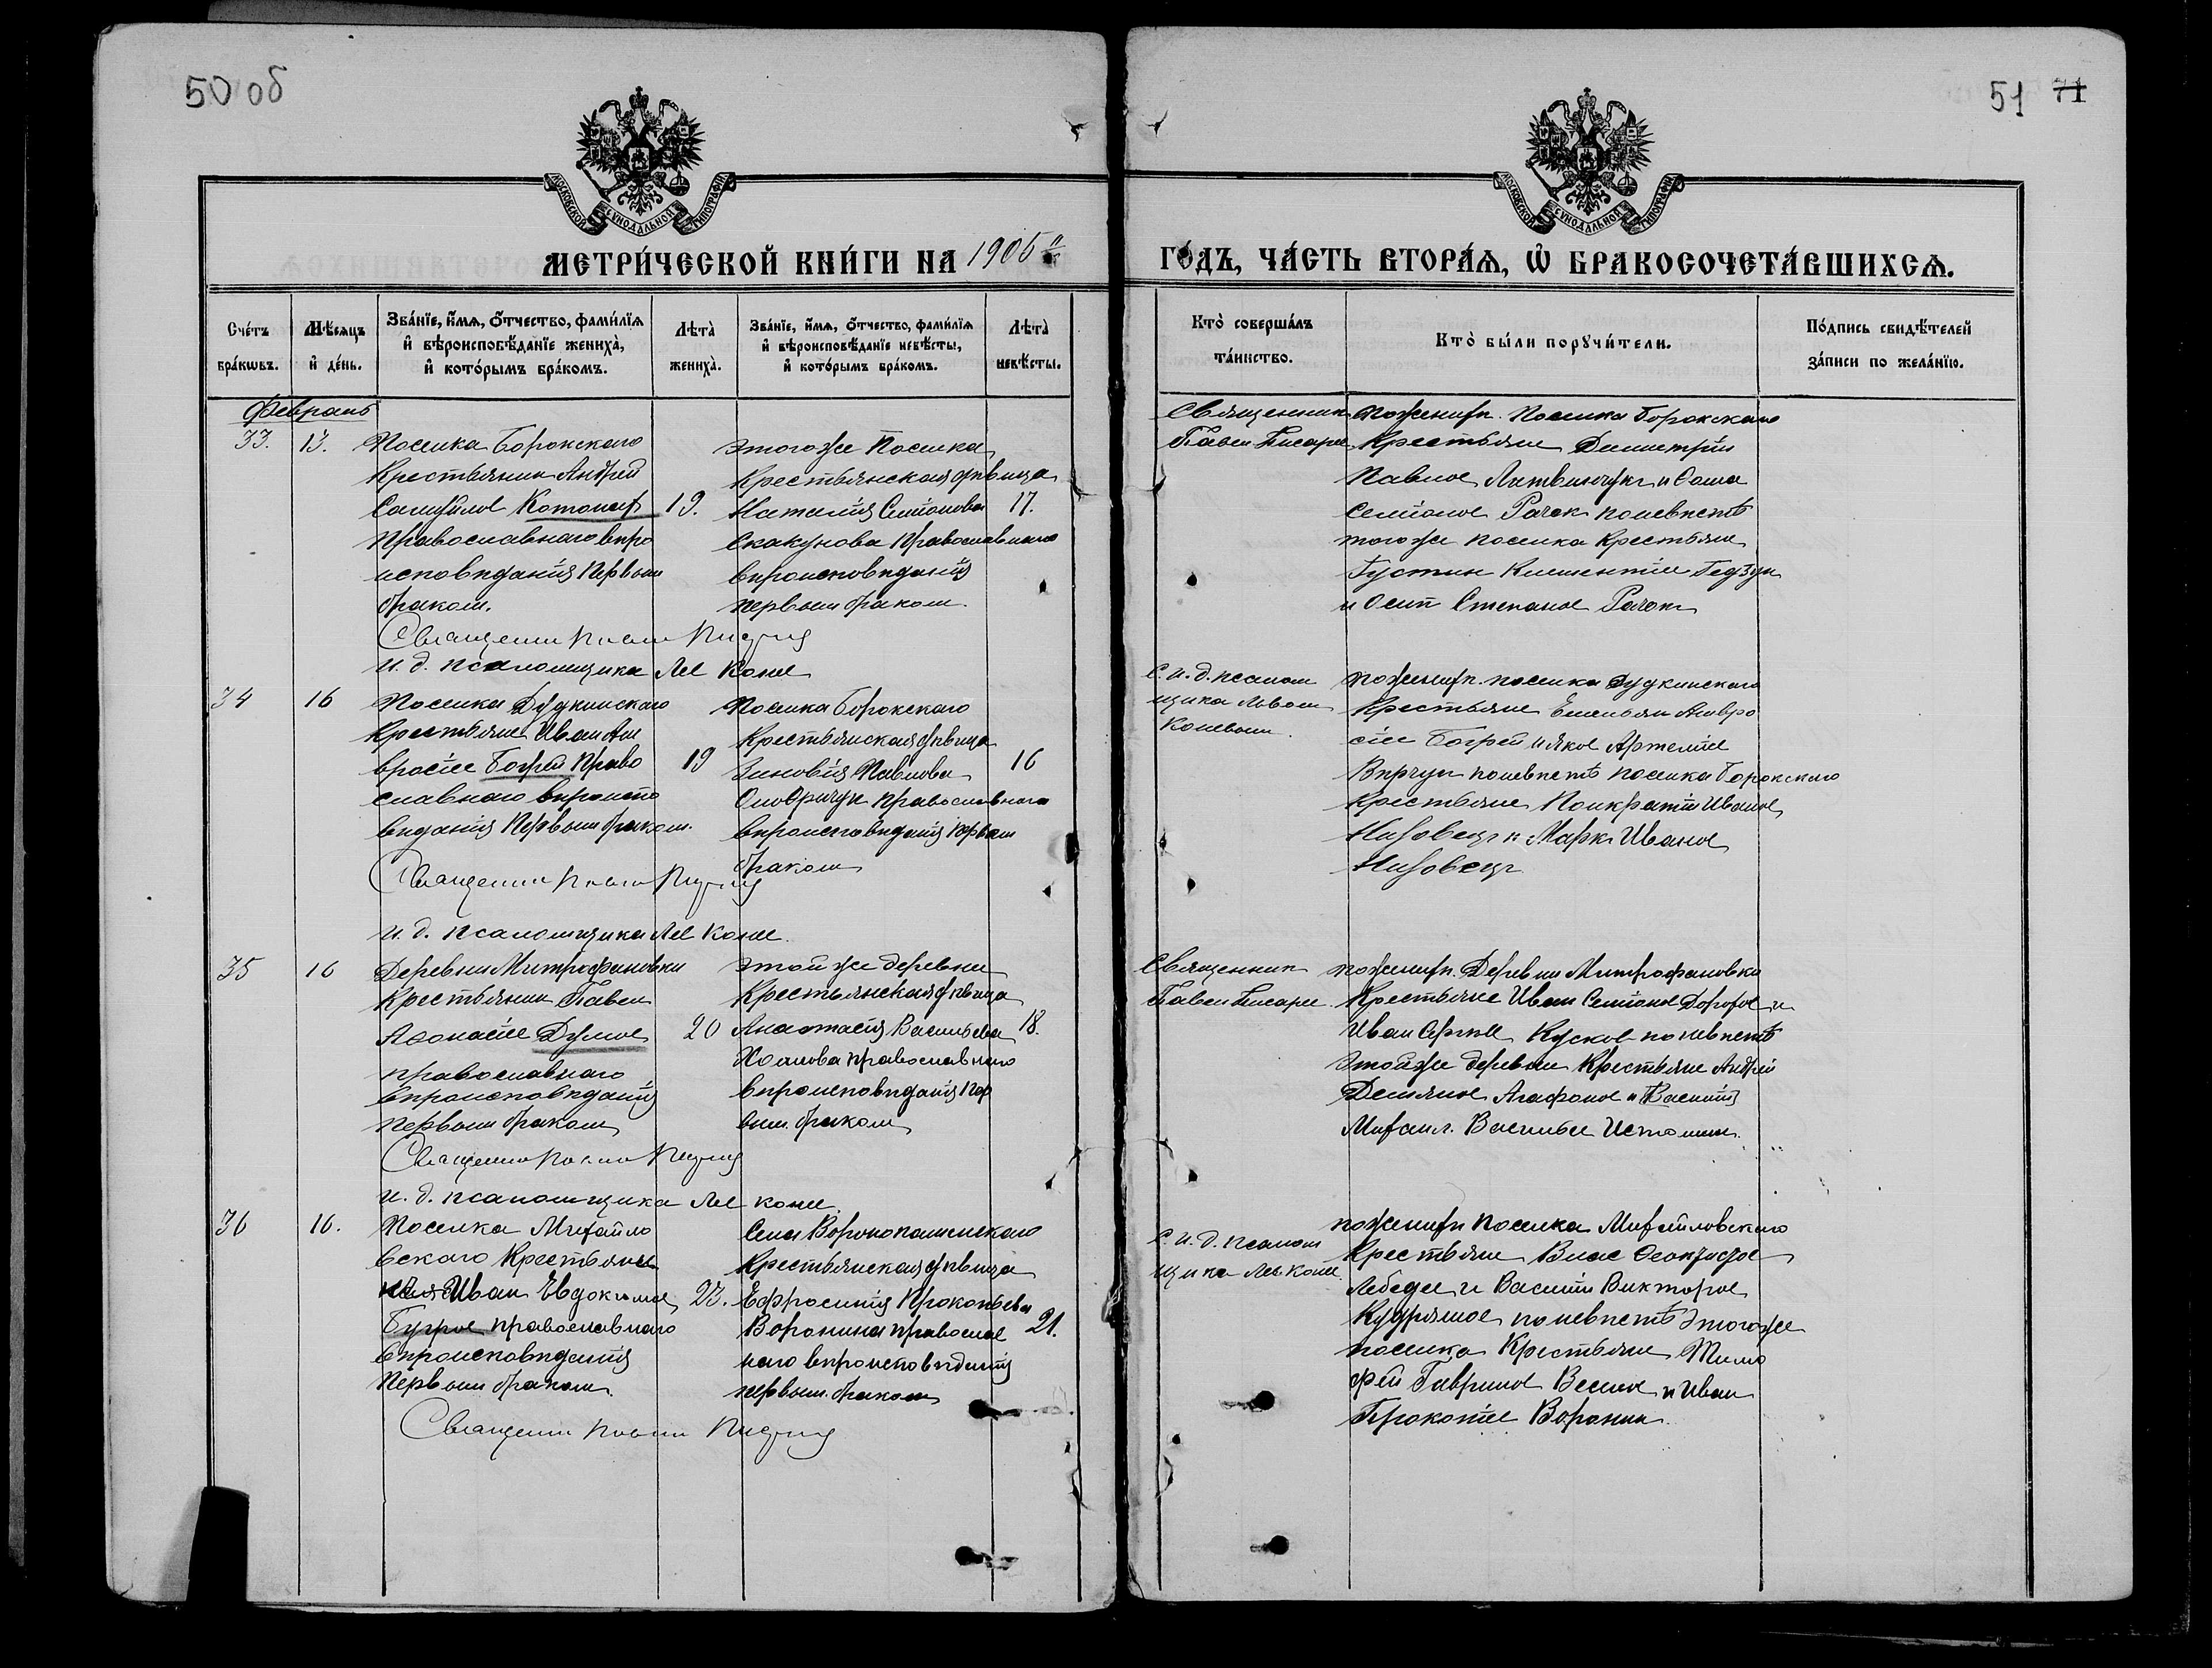 50 об
51 71
МОСКОВСКОЙ СУНОДАЛЬНОЙ ТИПОГРАФІИ
МОСКОВСКОЙ СУНОДАЛЬНОЙ ТИПОГРАФІИ
МЕТРИ́ЧЕСКОЙ КНИ́ГИ НА 1905
ГО́ДЪ, ЧА́СТЬ ВТОРА́Ѧ, Ѽ БРАКОСОЧЕТА́ВШИХСѦ.
Сче́тъ бра́кѡвъ.
Мѣ́сяцъ и҆ де́нь.
Зва́нїе, и҆́мѧ, ѻ҆́тчество, фами́лїѧ
и҆ вѣроисповѣ́данїе жениха̀,
и҆ кото́рымъ бра́комъ.
Лѣта̀ жениха̀.
Зва́нїе, и҆́мѧ, ѻ҆́тчество, фами́лїѧ
и҆ вѣроисповѣ́данїе невѣ́сты,
и҆ кото́рымъ бра́комъ.
Лѣта̀ невѣ́сты.
Кто̀ соверша́лъ та́инство.
Кто̀ бы́ли порꙋчи́тели.
По́дпись свидѣ́телей за́писи по жела́нїю.
Февраль
33. 13.
Поселка Борокскаго
Крестьянин Андрей
19.
Православнаго вѣро
исповѣданія Первым
браком.
Священник Павел
и. д. псаломщика Лев Конев
этогоже Поселка
Крестьянская дѣвица
Наталія Семіонова 17.
Скакунова Православнаго
вѣроисповѣданія
первым браком.
Священник
Павел Писарев
по жениху. Поселка Борокскаго
Крестьяне Димитрій
Павлов Литвинчук и Фома
Семіонов Рачок по невѣстѣ
тогоже поселка Крестьяне
и Осип Степанов Рачок
34 16
Поселка Дудкинскаго
Крестьянин Иван Ам
вросіев Право 19
славнаго вѣроиспо
вѣданія Первым браком.
Священник Павел
и. д. псаломщика Лев Конев.
Поселка Борокскаго
Крестьянская дѣвица
Зиновія Павлова 16
Православнаго
вѣроисповѣданія первым
браком
С. и. д. псалом
щика Львом
Коневым.
по жениху. поселка Дудкинскаго
Крестьяне Емельян Амвро
сіев и Яков Артеміев
по невѣстѣ поселка Борокскаго
Крестьяне Панкратій Иванов
и Марк Иванов
35 16
Деревни Митрофановки
Крестьянин Павел
Афонасіев 20
православнаго
вѣроисповѣданія
первым браком
Священник Павел
и. д. псаломщика Лев Конев.
этой же деревни
Крестьянская дѣвица
Анастасія Васильева 18.
православнаго
вѣроисповѣданія пер
вым. браком
Священник
Павел Писарев
по жениху. Деревни Митрофановки
Крестьяне Иван Семіонов Дорофов и
Иван Сергѣев Кусков по невѣстѣ
этойже деревни Крестьяне Андрей
Демьянов Агафонов и
Михаил. Васильев Истомин.
36 16.
Поселка Михайло
вскаго Крестьянин
Иван Евдокимов 23.
Бугров православнаго
вѣроисповѣданія
Первым браком.
Священник Павел
Села Воронопашенскаго
Крестьянская дѣвица
Ефросинія Прокопьева
Воронина православ 21.
наго вѣроисповѣданія
первым. браком
С. и. д. псалом
щика Лев Конев.
по жениху поселка Михайловскаго
Крестьяне Влас
Лебедев и Василій Викторов
Кудрямов по невѣстѣ этогоже
поселка Крестьяне Тимо
фей Гаврилов и Иван
Прокопіев Воронин.